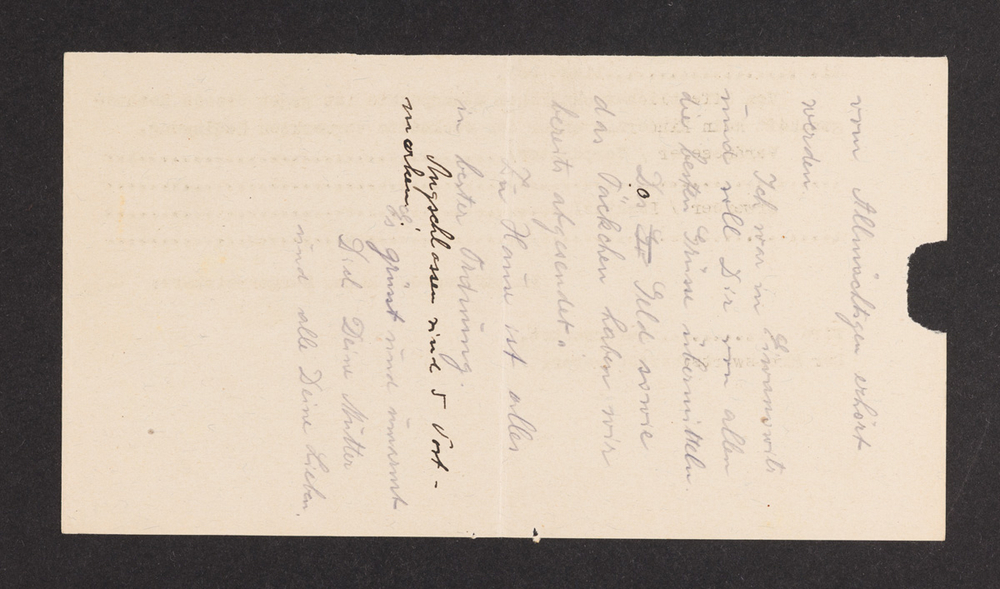 vom Allmächtigen erhört
werden.
Ich war in Eiwanowitz
und soll Dir von allen
die besten Grüsse übermitteln.
Das Geld sowie
das Päckchen haben wir
bereits abgesendet.
Zu Hause ist alles
in bester Ordnung.
Angschlossen sind 5 Post-
marken!
Es grüsst und umarmt
Dich Deine Mutter
und alle Deine Lieben.